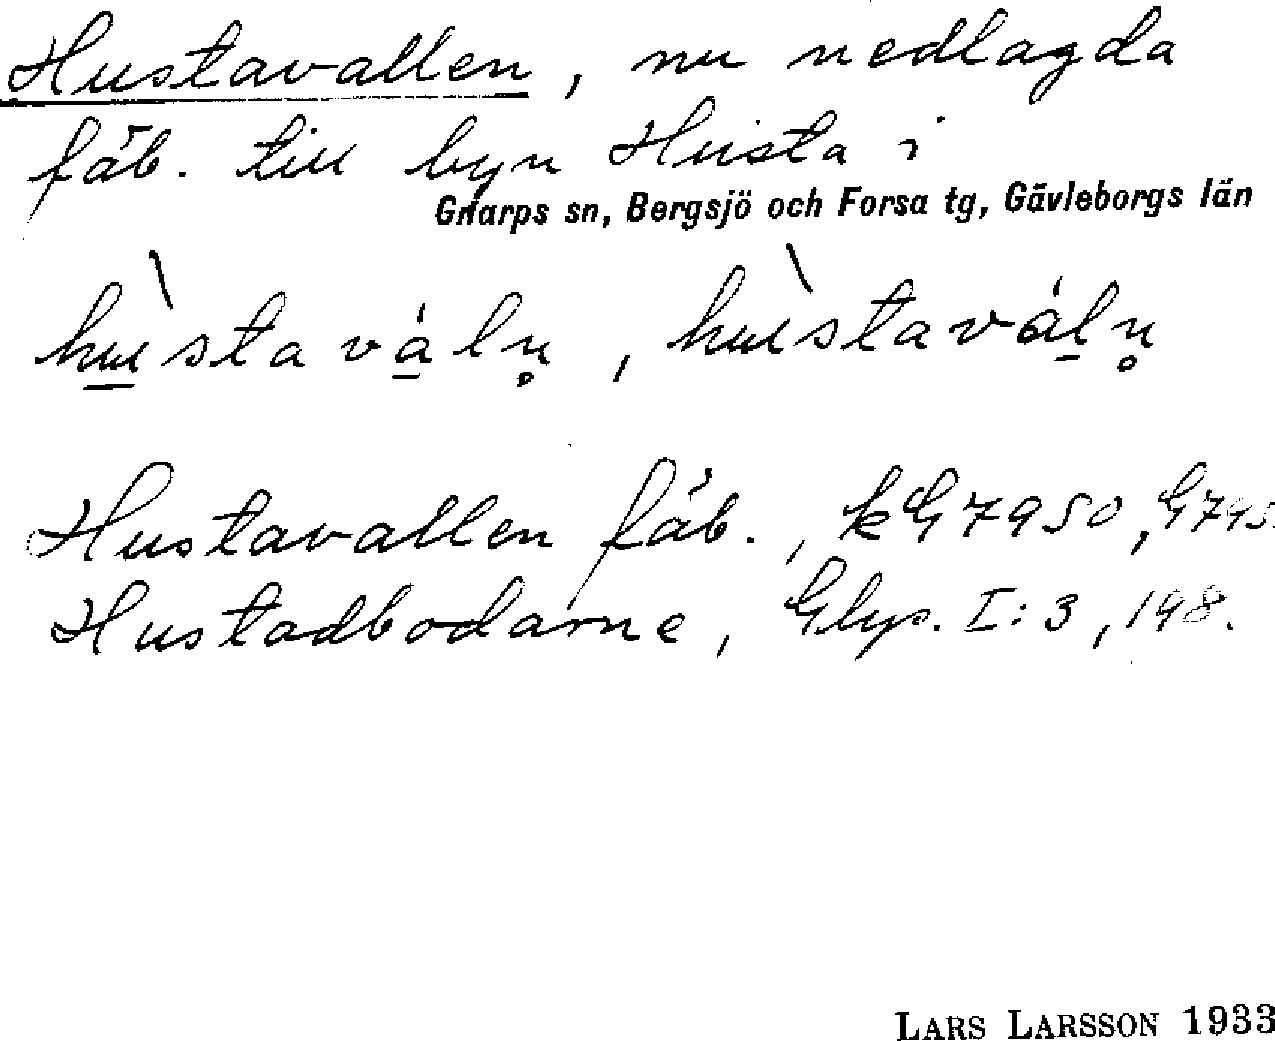 Hustavallen, nu nedlagda
fäb. till byn Husta i
Gnarps sn, Bergsjö och Forsa tg, Gävleborgs län
hùstaváln̥, hùstavál̥n̥
Hustavallen fäb., kG7950, G795
Hustadbodarne, Glys. I:3, 198.
LARS LARSSON 1933